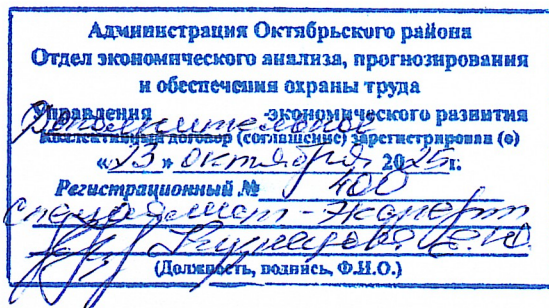 Администрация Октябрьского района
Отдел экономического анализа, прогнозирования
и обеспечения охраны труда
Управления -экономического развития
Дополнительное
Коллективный договор (соглашение) зарегистрирован (о)
«23» октября 2025г.
Регистрационный № 400
специалист-эксперт
(Должность, подпись, Ф.И.О.)